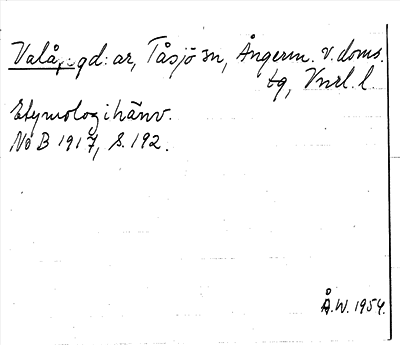 Valå, gd: ar, Tåsjö sn, Ångerm. v. doms.
tg, Vnrl. l.
Etymologihänv.
NoB 1917, S. 192.
Å.W. 1954.